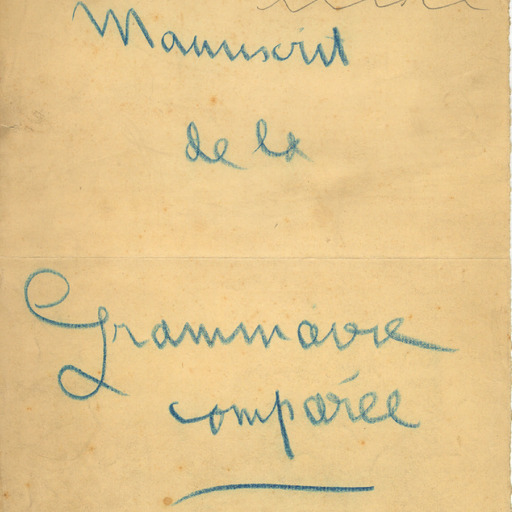 Manuscrit
de la
Grammaire
comparée